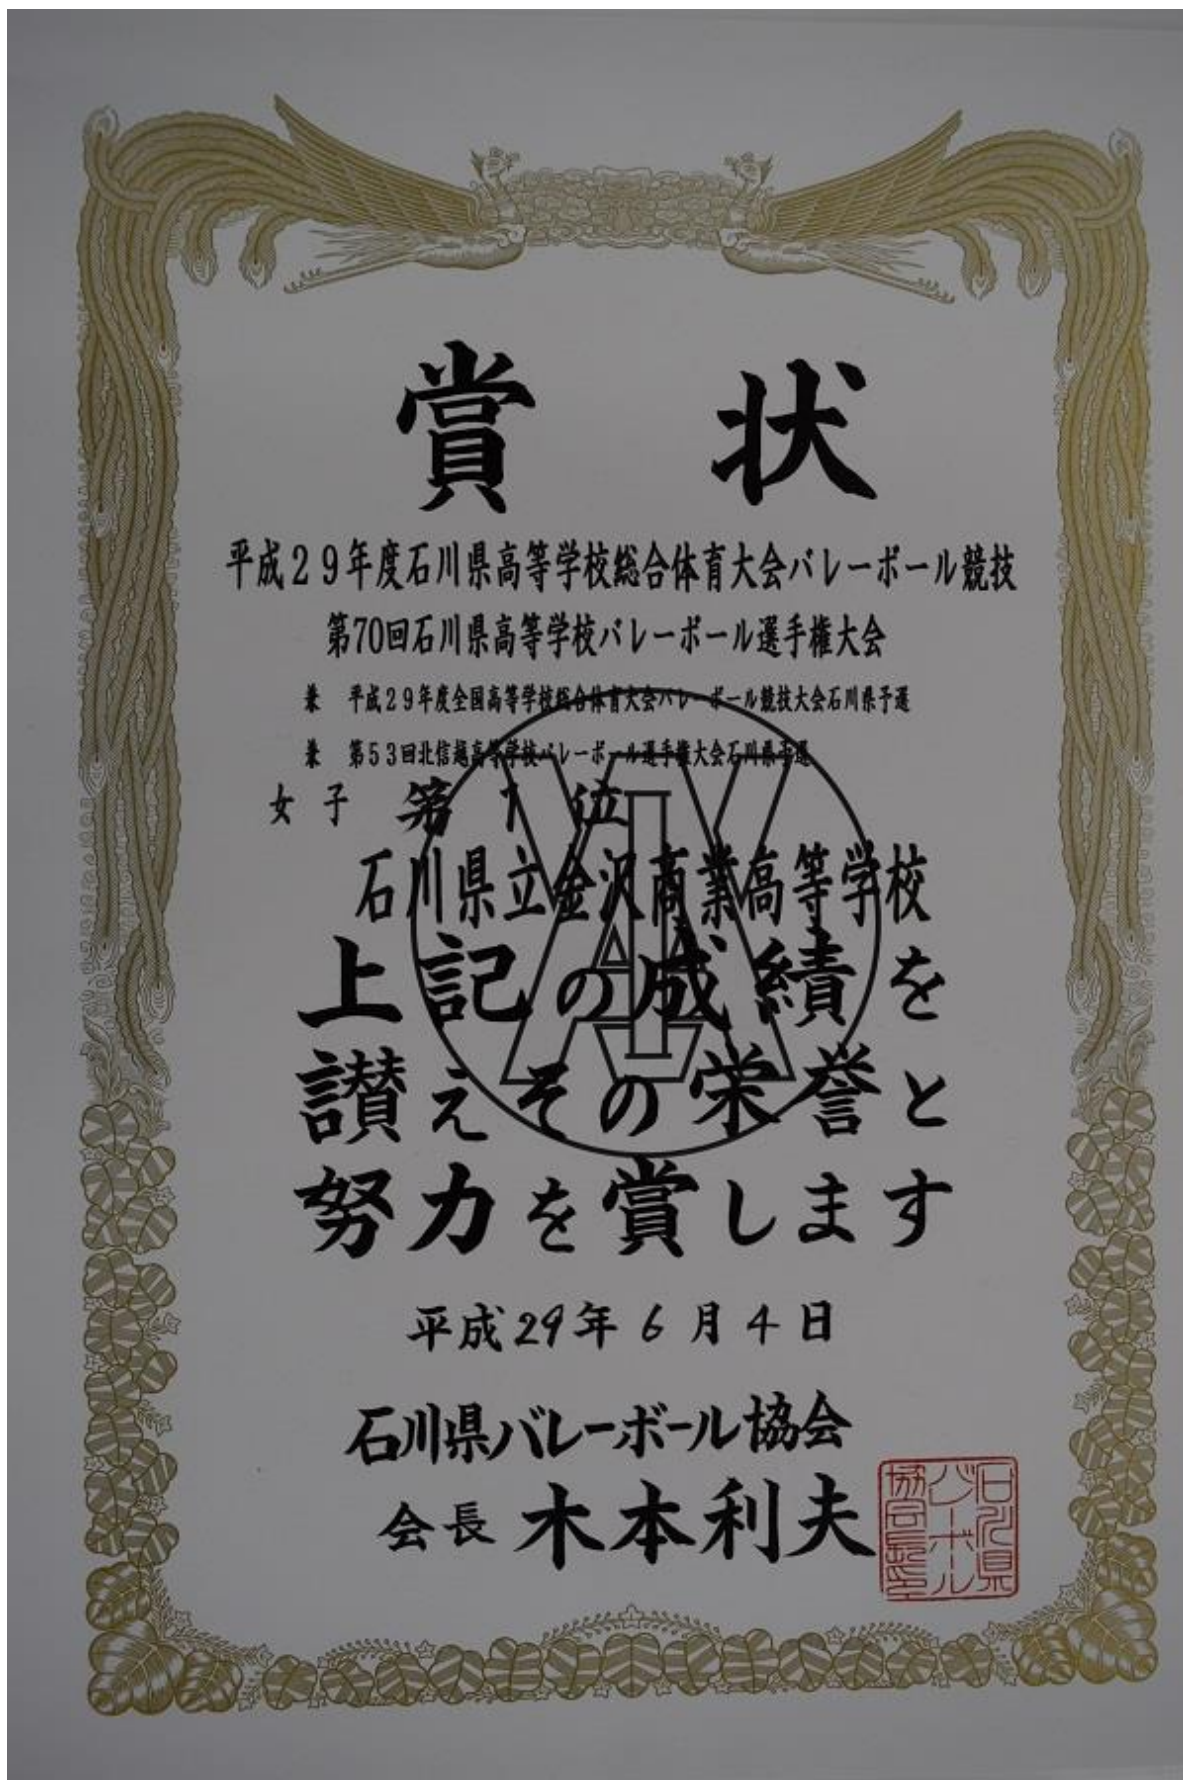 賞状
平成29年度石川県高等学校総合体育大会バレーボール競技
第70回石川県高等学校バレーボール選手権大会
兼 平成29年度全国高等学校総合体育大会バレーボール競技大会石川県予選
兼 第53回北信越高等学校バレーボール選手権大会石川県予選
女子 第1位
石川県立金沢商業高等学校
上記の成績を
讃えその栄誉と
努力を賞します
平成29年6月4日
石川県バレーボール協会
会長 木本利夫
石川県
バレーボール
協会長印